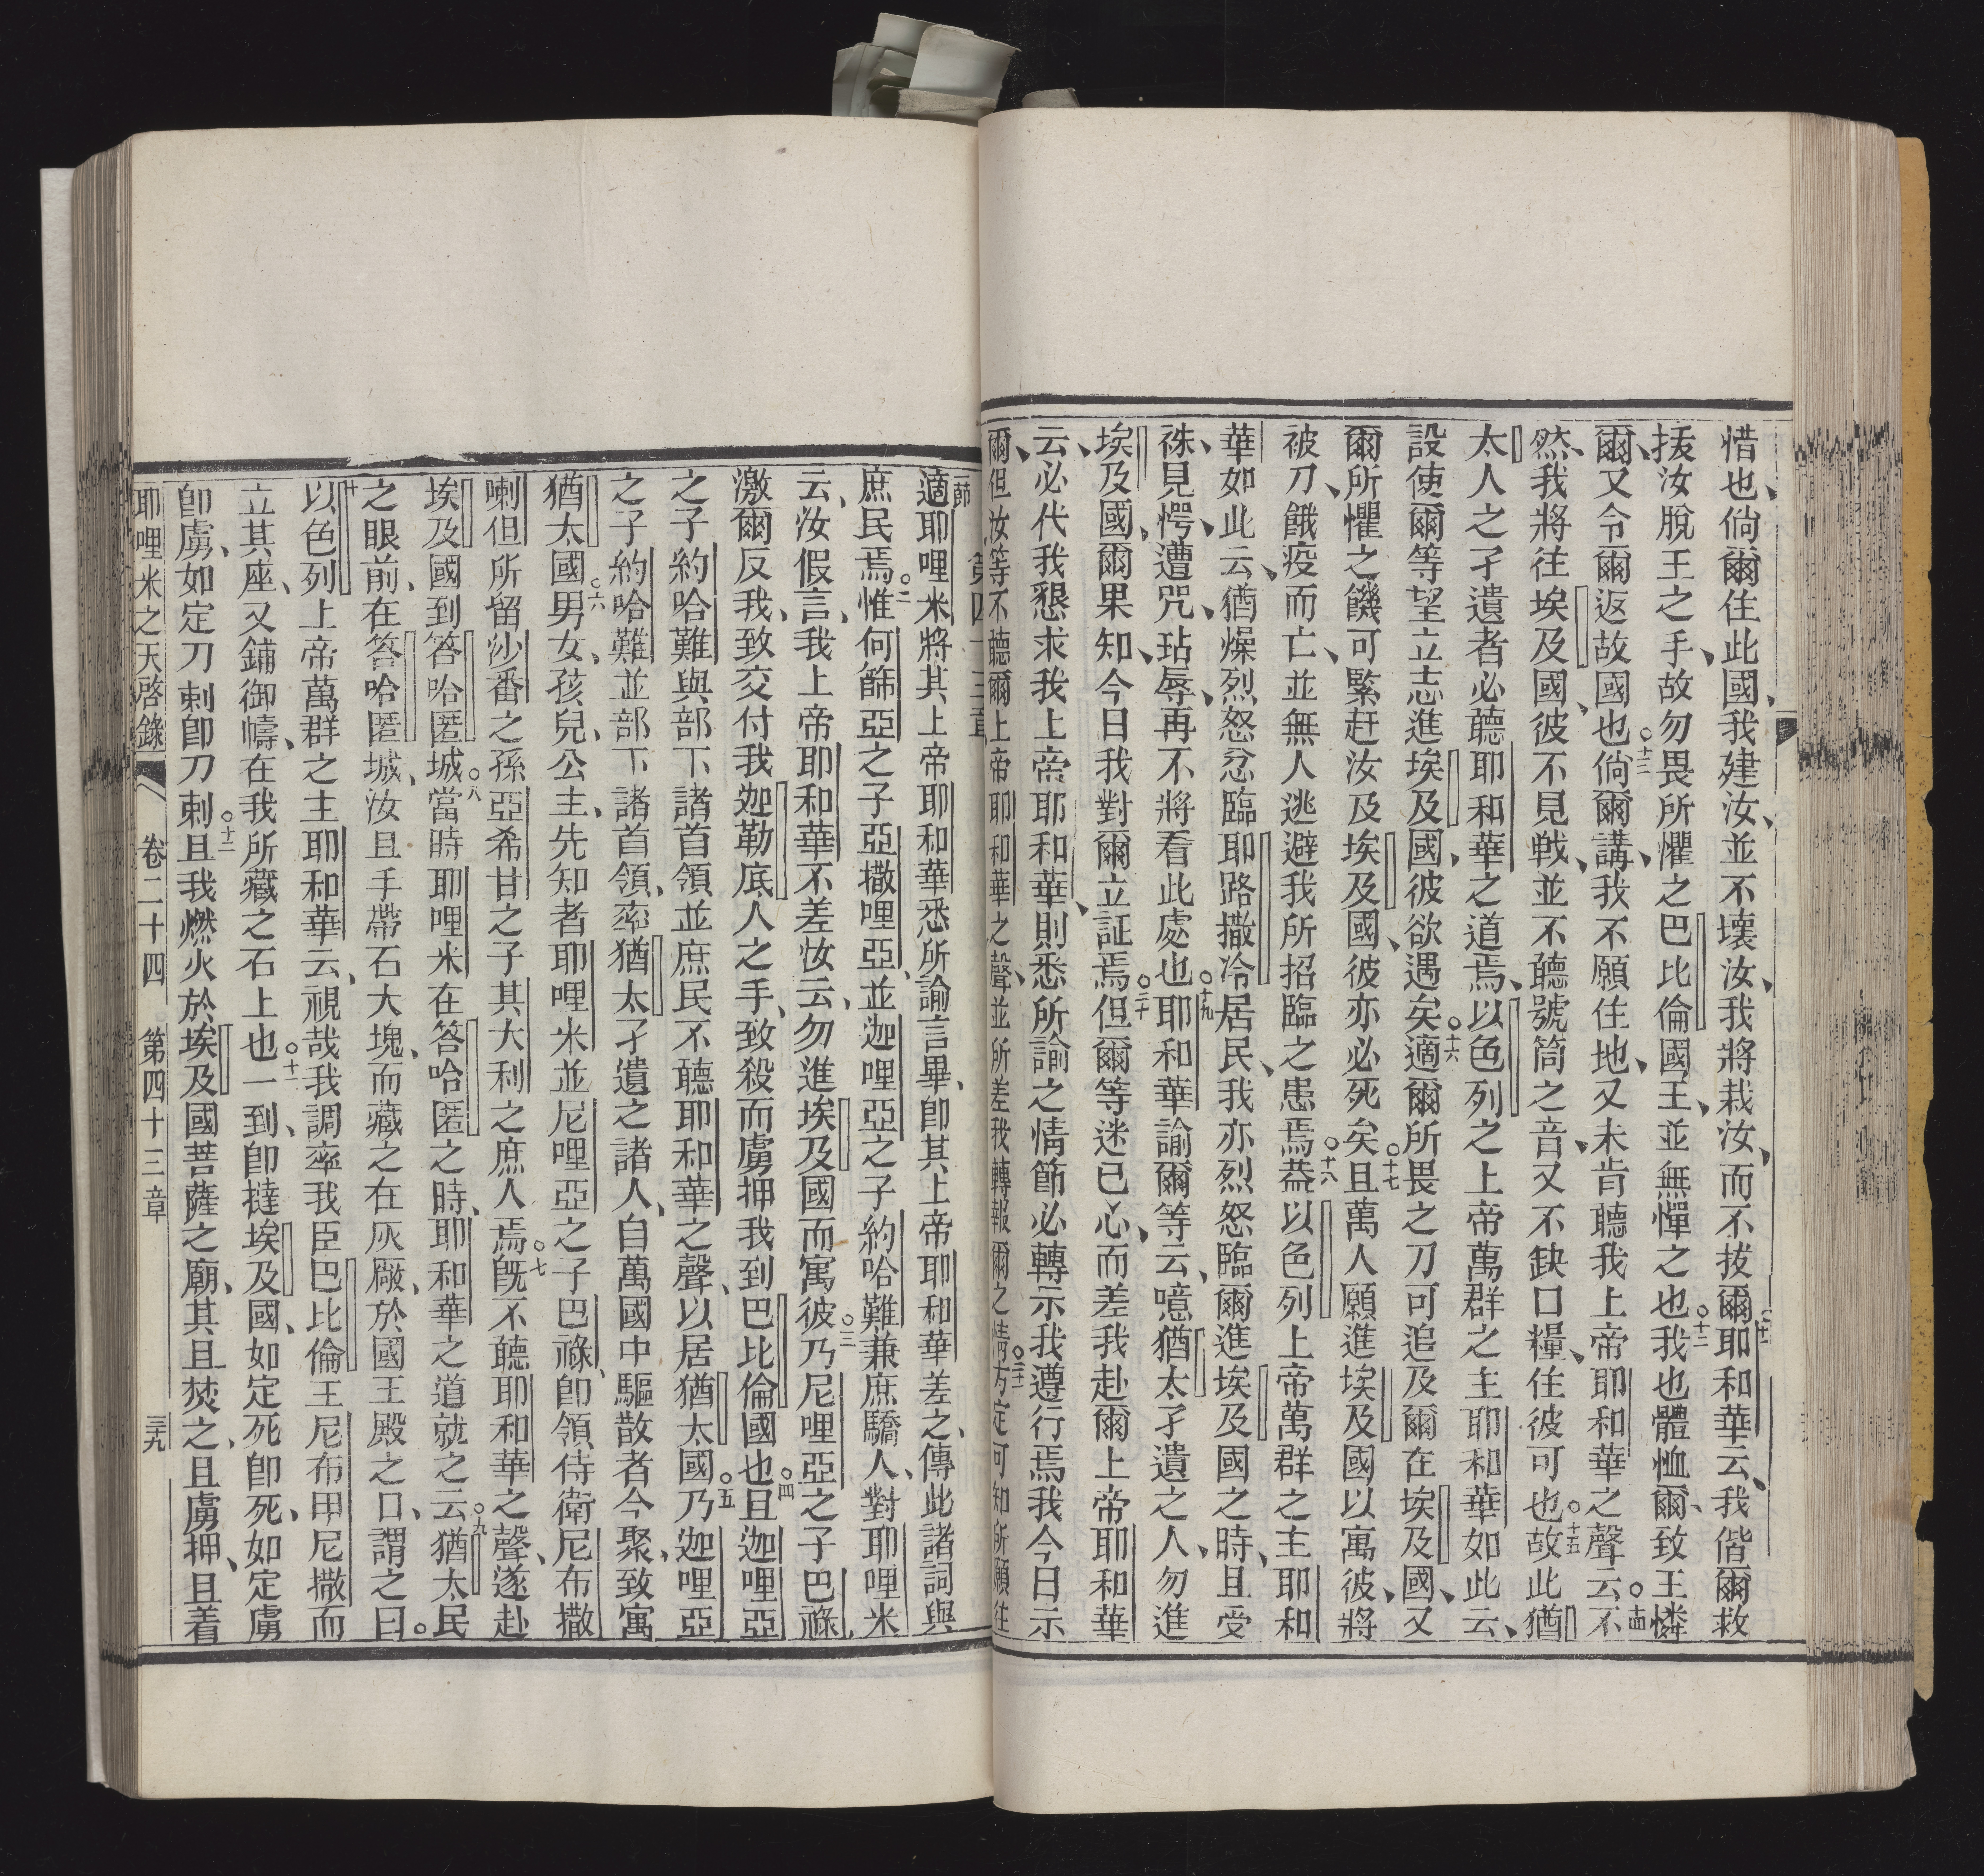 惜也、倘爾住此國、我建汝、並不壞汝、我將栽汝、而不拔爾、○十一耶和華云、我偕爾救
援汝脫王之手、故勿畏所懼之巴比倫國王、並無憚之也、○十二我也體恤爾、致王憐
爾、又令爾返故國也、○十三倘爾講、我不願住地、又未肯聽我上帝耶和華之聲云、○十四不
然、我將往埃及國、彼不見戰、並不聽號筒之音、又不缺口糧、住彼可也、○十五故此猶
太人之孑遺者、必聽耶和華之道焉、以色列之上帝萬群之主耶和華如此云、
設使爾等望立志進埃及國、彼欲遇矣、○十六適爾所畏之刀可追及爾在埃及國、又
爾所懼之饑可緊赶汝及埃及國、彼亦必死矣、○十七且萬人願進埃及國以寓彼、將
被刀、餓疫而亡、並無人逃避我所招臨之患焉、○十八蓋以色列上帝萬群之主耶和
華如此云、猶燥烈怒忿臨耶路撒冷居民、我亦烈怒臨爾進埃及國之時、且受
殊、見愕、遭咒、玷辱、再不將看此處也、○十九耶和華諭爾等云、噫猶太孑遺之人、勿進
埃及國、爾果知、今日我對爾立証焉、○二十但爾等迷己心、而差我赴爾上帝耶和華
云、必代我懇求我上帝耶和華、則悉所諭之情節必轉示我遵行焉、我今日示
爾、但汝等不聽爾上帝耶和華之聲、並所差我轉報爾之情、○二十二方定可知所願往
第四十三章
適耶哩米將其上帝耶和華悉所諭言畢、卽其上帝耶和華差之、傳此諸詞與
庶民焉、○二惟何篩亞之子亞撒哩亞、並迦哩亞之子約哈難兼庶驕人、對耶哩米
云、汝假言、我上帝耶和華不差汝云、勿進埃及國而寓彼、○三乃尼哩亞之子巴祿
激爾反我、致交付我迦勒底人之手、致殺而虜押我到巴比倫國也、○四且迦哩亞
之子約哈難與部下諸首領並庶民不聽耶和華之聲、以居猶太國、○五乃迦哩亞
之子約哈難並部下諸首領、率猶太孑遺之諸人、自萬國中驅散者今聚、致寓
猶太國、○六男女、孩兒、公主、先知者耶哩米並尼哩亞之子巴祿、卽領侍衛尼布撒
喇但所留沙番之孫亞希甘之子其大利之庶人焉、○七旣不聽耶和華之聲、遂赴
埃及國到答哈匿城、○八當時耶哩米在答哈匿之時、耶和華之道就之云、○九猶太民
之眼前、在答哈匿城、汝且手帶石大塊、而藏之在灰廠、於國王殿之口、謂之曰、○
十以色列上帝萬群之主耶和華云、視哉我調率我臣巴比倫王尼布甲尼撒而
立其座、又鋪御幬、在我所藏之石上也、○十一一到、卽撻埃及國、如定死卽死、如定虜
卽虜、如定刀刺卽刀刺、○十二且我燃火於埃及國菩薩之廟、其且焚之、且虜押、且着
耶哩米之天啓錄 卷二十四 第四十三章 三十九